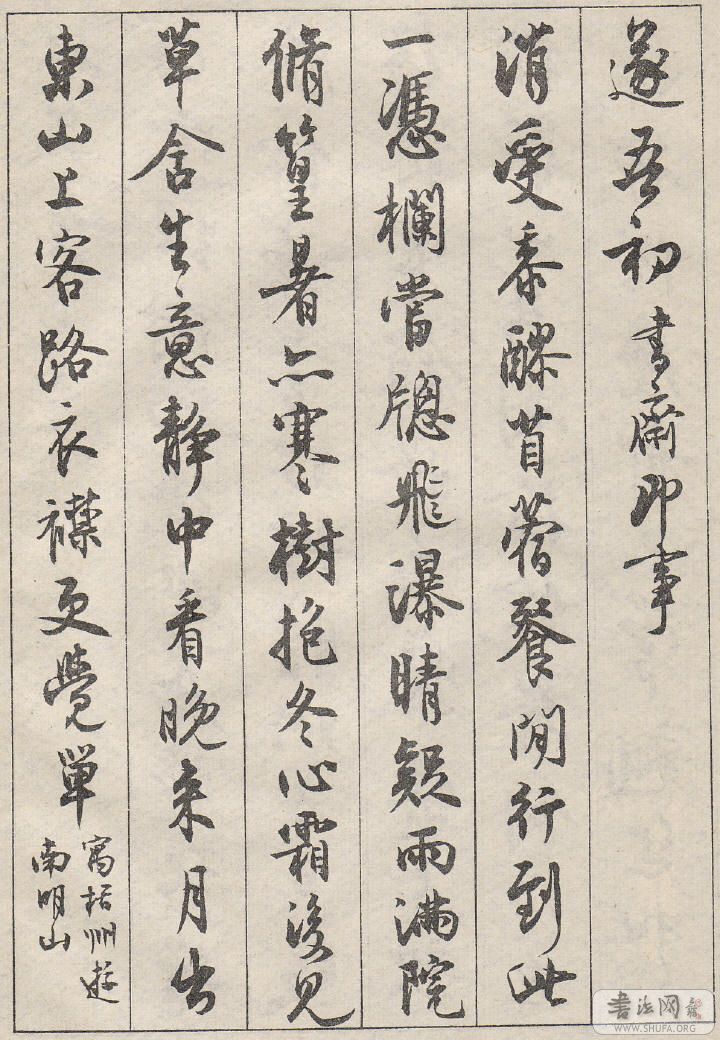 遂吾初書齋即事
消受黍醪苜蓿餐閒行到此
一憑欄當牕飛瀑晴疑雨滿院
脩篁暑亦寒樹抱冬心霜後見
草含生意靜中看晚來月出
東山上客路衣襟更覺單
寓栝州游
南明山
書法网
WWW.SHUFA.ORG